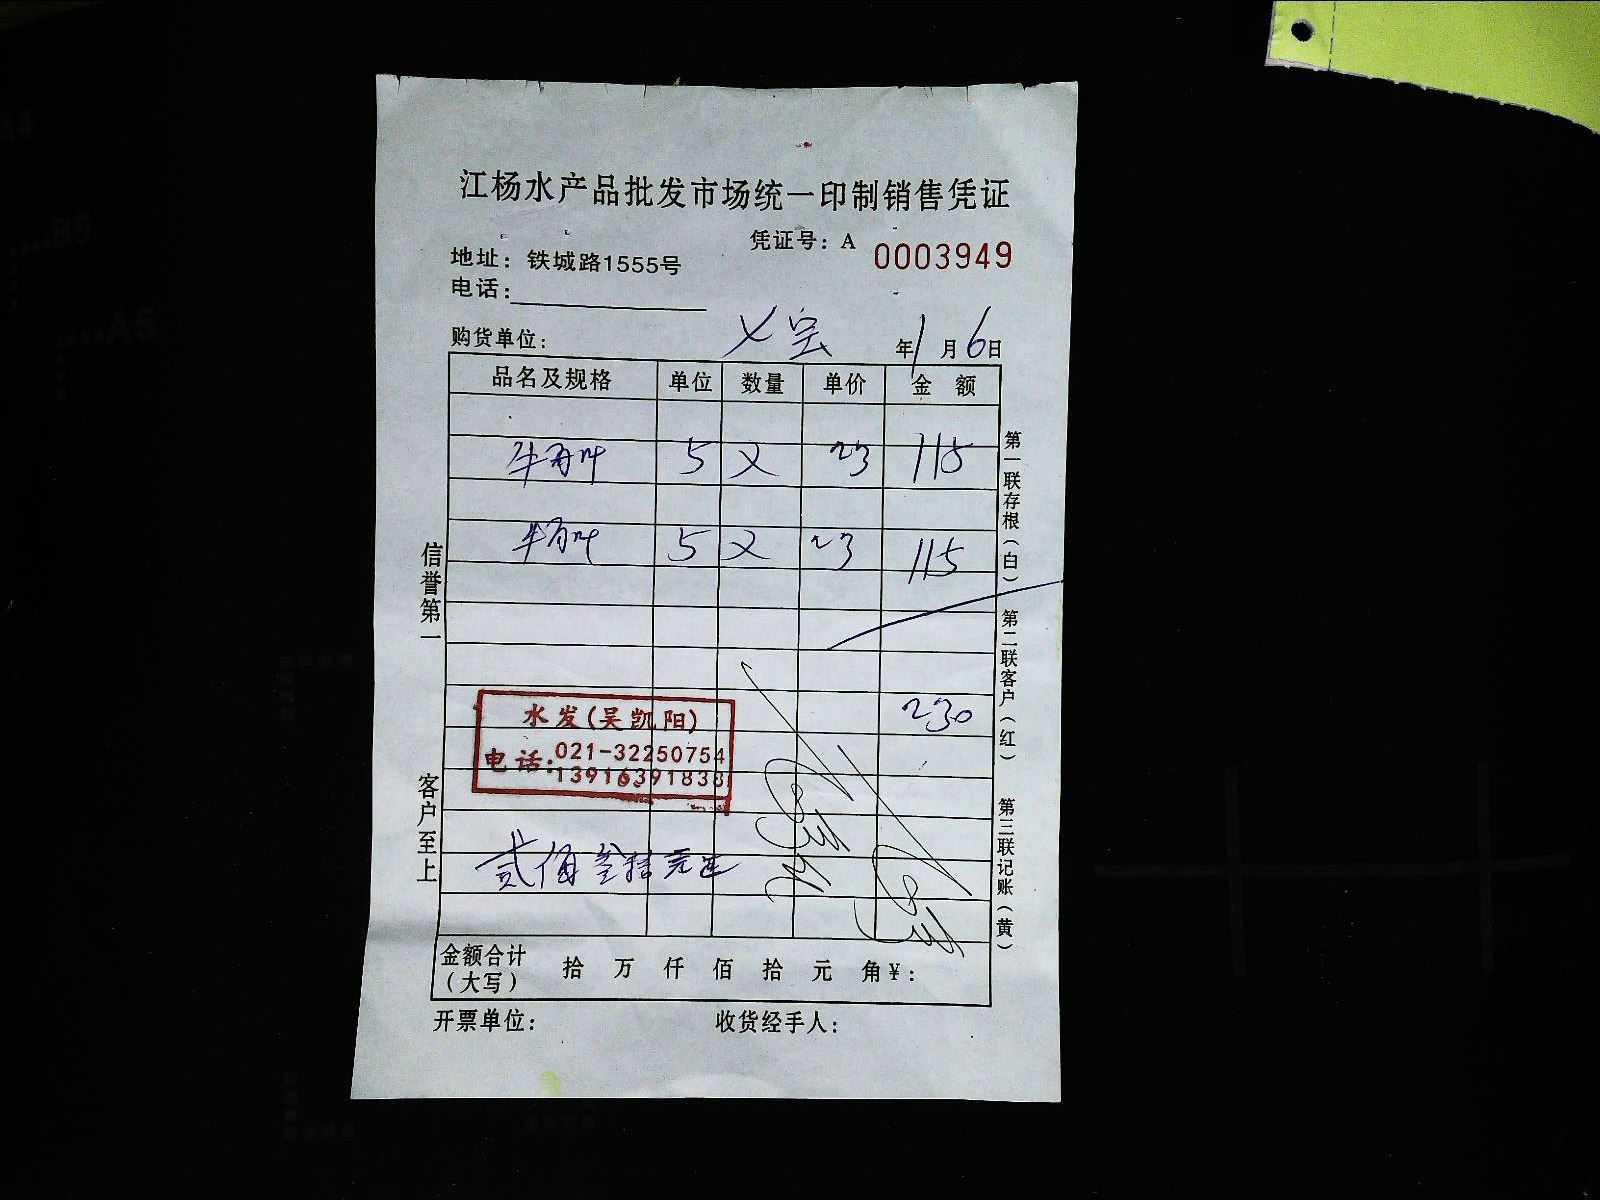 江杨水产品批发市场统一印制销售凭证
凭证号：A 0003949
地址：铁城路1555号
电话：
购货单位： 年1月6日
品名及规格 单位 数量 单价 金 额
5 23 115
5 23 115
230
水发(吴凯阳)
电话：021-32250754
13916391838
贰佰叁拾元正
金额合计（大写） 拾 万 仟 佰 拾 元 角 ¥：
开票单位： 收货经手人：
信誉第一 客户至上
第一联存根（白） 第二联客户（红） 第三联记账（黄）
A4
B5
A5